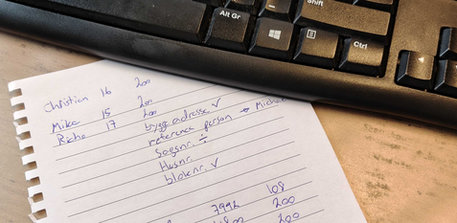 Shift
Alt Gr
Ctrl
Christian 16 200
Mike 15 200
Riche 17 200
bygg adresse ✓
reference person → Michael
Sagsnr. ÷
Husnr.
bloknr. ✓
7992 108
200
200